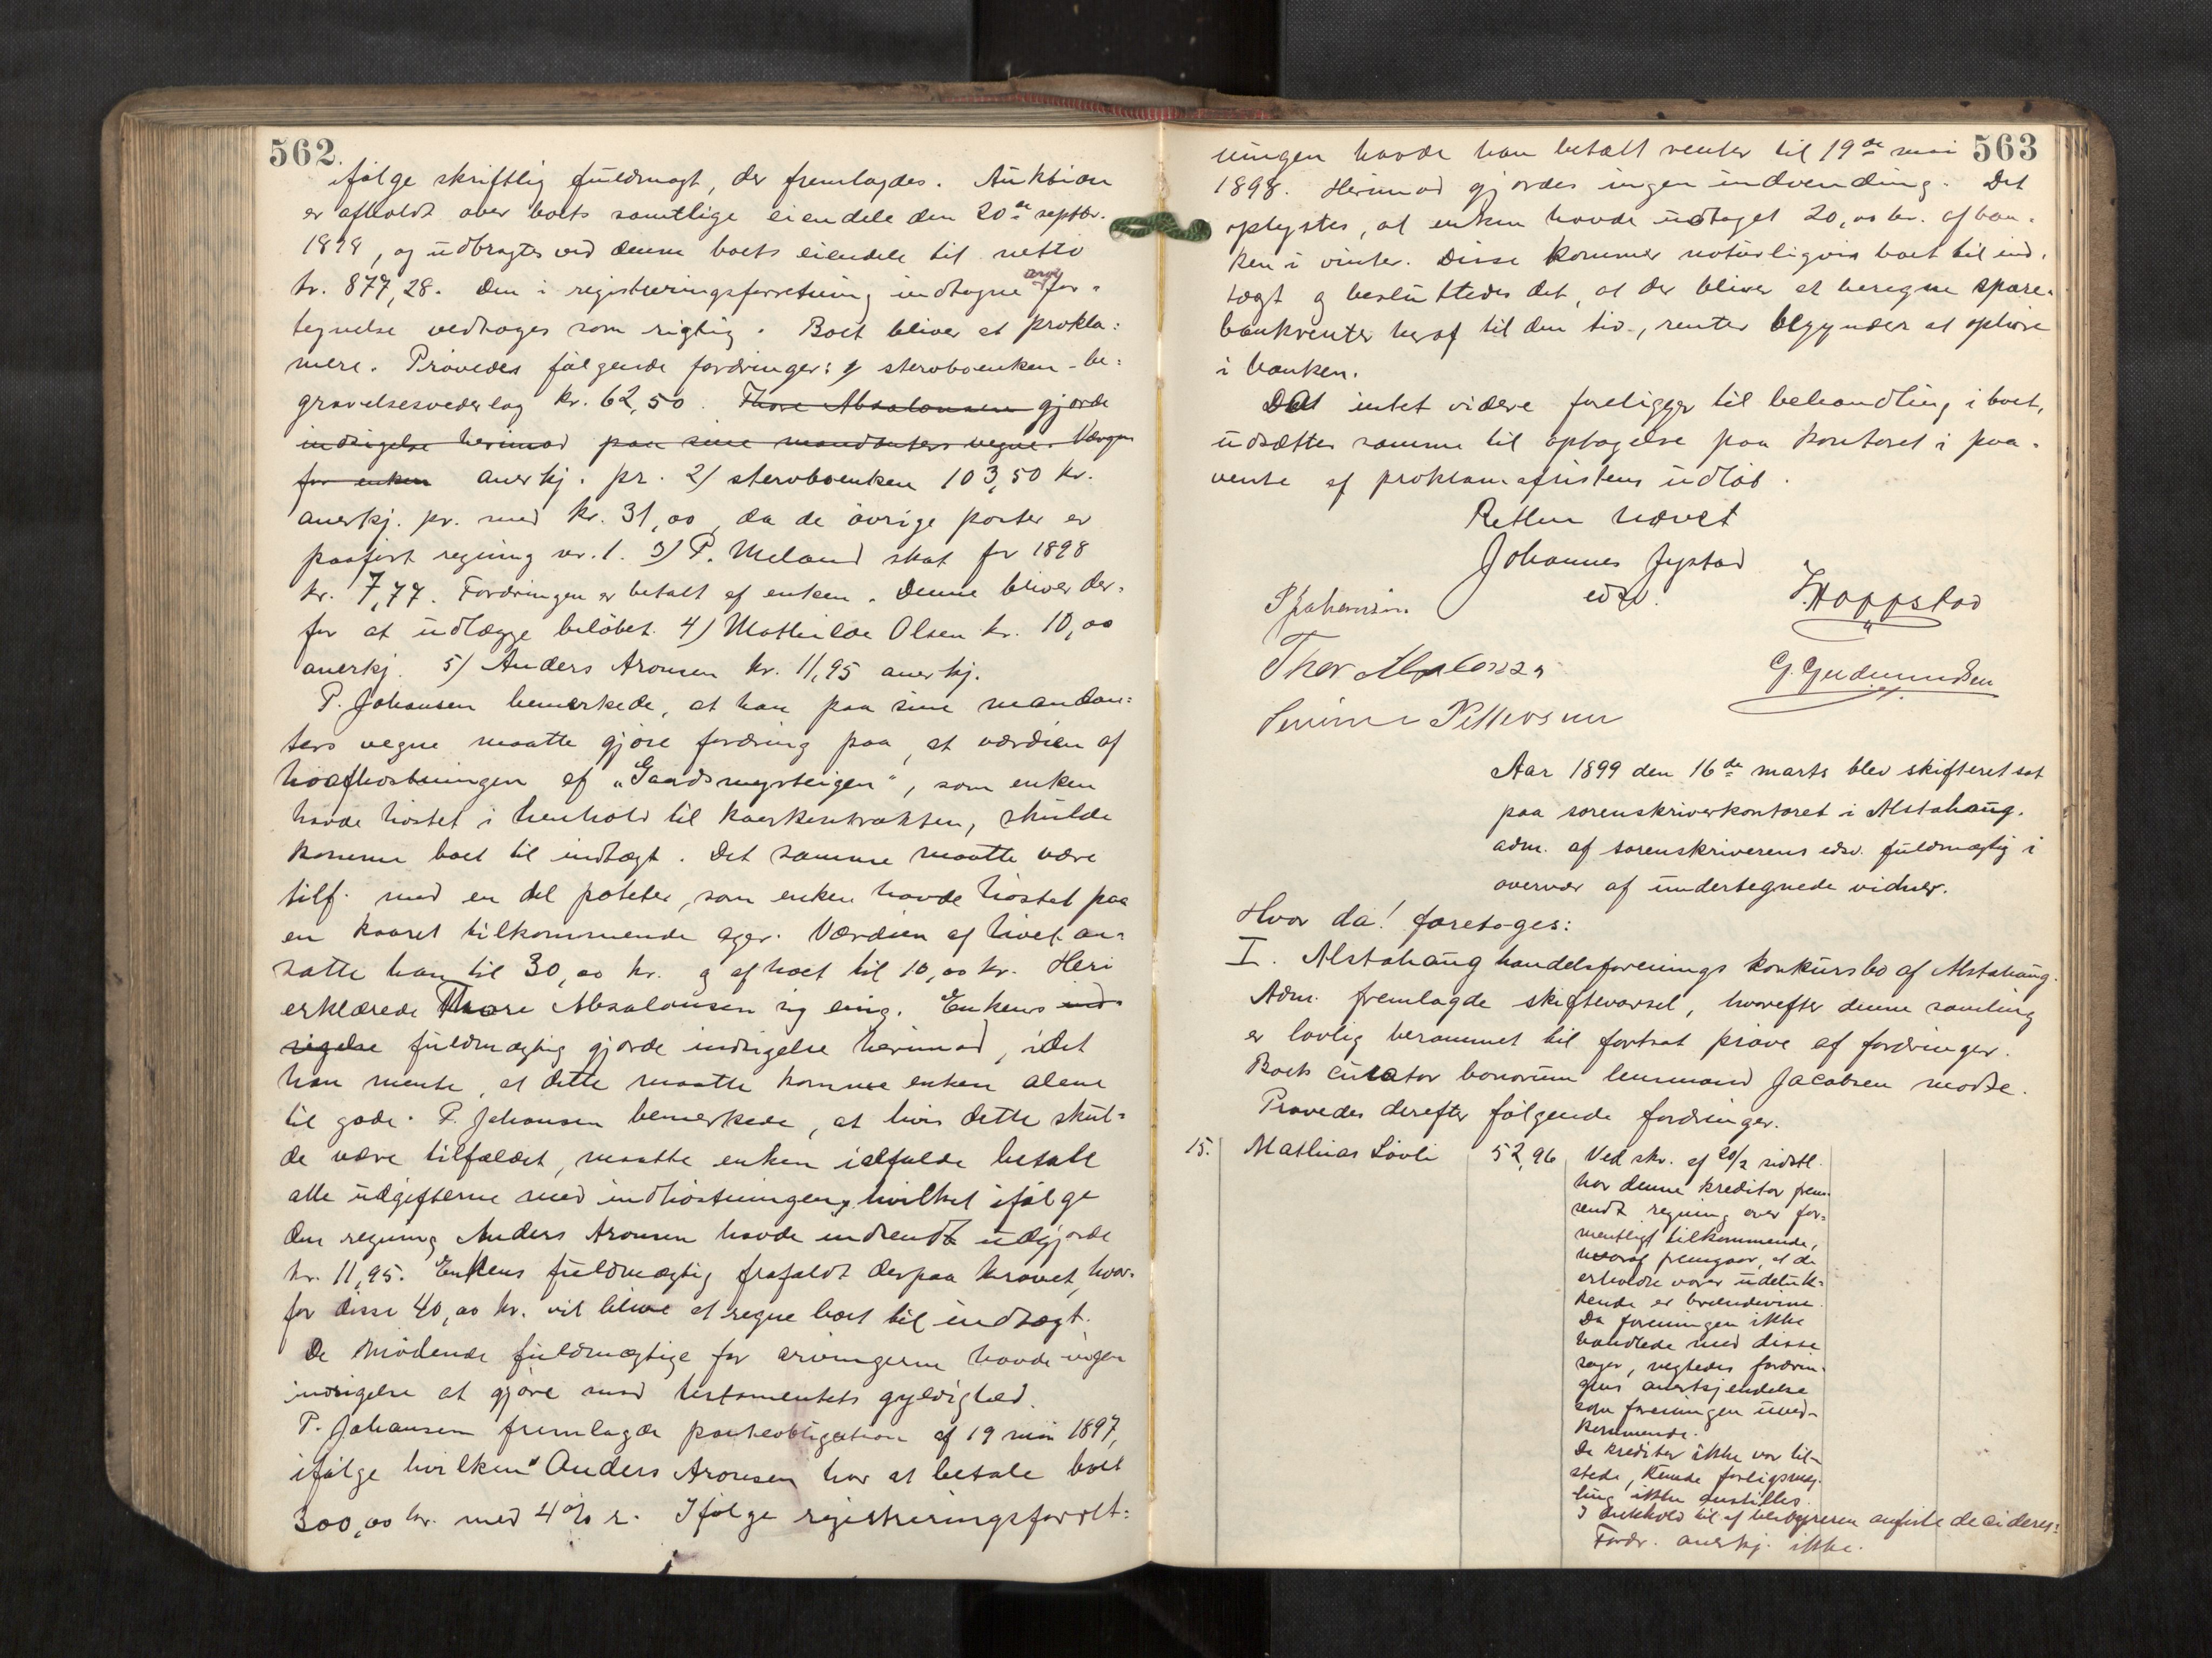 562.
ifølge skriftlig fuldmagt, der fremlagdes. Auktion
er afholdt over boets samtlige eiendele den 20de septbr.
1898, og udbragtes ved denne boets eiendele til netto
kr. 877,28. Den i registreringsforretning indtagne arvefor-
tegnelse vedtoges som rigtig. Boet bliver at prokla-
mere. Prövedes følgende fordringer: 1/ sterboenken - be-
gravelsesvederlag kr. 62,50. Thore Absalonsen gjorde
indsigelse herimod paa sine mandanters vegne. Værgen
for enken anerkj. pr. 2/ sterboenken 103,50 kr.
anerkj. pr. med kr. 31,00, da de øvrige poster er
paaført regning nr. 1. 3) P. Meland skat for 1898
kr. 7,77. Fordringen er betalt af enken. Denne bliver der-
for at udlægge beløbet. 4) Mathilde Olsen kr. 10,00
anerkj. 5) Anders Aronsen kr. 11,95 anerkj.
P. Johansen bemerkede, at han paa sine mandan-
ters vegne maatte gjøre fordring paa, at værdien af
høafhøstningen af "Gaardsmyrteigen", som enken
havde høstet i henhold til kaarkontrakten, skulde
komme boet til indtægt. Det samme maatte være
tilf. med en del poteter, som enken havde høstet paa
en kaaret tilkommende ager. Værdien af høiet an-
satte han til 30,00 kr. og af høet til 10,00 kr. Heri
erklærede Thore Absalonsen sig enig. Enkens ind-
sigelse fuldmægtig gjorde indsigelse herimod, idet
han mente, at dette maatte komme enken alene
til gode. P. Johansen bemerkede, at hvis dette skul-
de være tilfældet, maatte enken ialfald betale
alle udgifterne med indhøstningen, hvilket ifølge
den regning Anders Aronsen havde indsendt udgjorde
kr. 11,95. Enkens fuldmægtig frafaldt derpaa kravet, hvor-
for disse 40,00 kr. vil blive at regne boet til indtægt.
De mødende fuldmægtige for arvingerne havde ingen
indsigelse at gjøre mod testamentets gyldighed.
P. Johansen fremlagde panteobligation af 19 mai 1897,
ifølge hvilken Anders Aronsen har at betale boet
300,00 kr. med 4% r. Ifølge registreringsforret-
563
ningen havde han betalt renter til 19de mai
1898. Herimod gjordes ingen indvending. Det
oplystes, at enken havde udtaget 20,00 kr. af ban-
ken i vinter. Disse kommer naturligvis boet til ind-
tægt og besluttedes det, at der bliver at beregne spare-
bankrenter heraf til den tid, renter begynder at ophøre
i banken.
Da intet videre foreligger til behandling i boet,
udsættes samme til optagelse paa kontoret i paa-
vente af proklamafristens udløb.
Retten hævet
Johannes Jystad
edsv.
P Johansen.
J. Hoppstad
Thor Absalonsen
G. Gudmundsen
Pettersen
Aar 1899 den 16de marts blev skifteret sat
paa sorenskriverkontoret i Alstahaug.
adm. af sorenskriverens edsv. fuldmægtig i
overvær af undertegnede vidner.
Hvor da! foretoges:
I. Alstahaug handelsforenings konkursbo af Alstahaug.
Adm. fremlagde skiftevarsel, hvorefter denne samling
er lovlig berammet til fortsat prøve af fordringer.
Boets curator bonorum lensmand Jacobsen mødte.
Prøvedes derefter følgende fordringer.
15. Mathias Løvli 52,96 Ved skr. af 20/2 sidstl.
har denne kreditor frem-
sendt regning over for-
mentligt tilkommende,
hvoraf fremgaar, at de
erholdte varer udeluk-
kende er brændevine.
Da foreningen ikke
handlede med disse
sager, negtedes fordrin-
gens anerkjendelse
som foreningen uved-
kommende.
Da kreditor ikke var til-
stede, kunde forligsmæg-
ling ikke anstilles.
I henhold til af bestyreren anførte decideres:
Fordr. anerkj. ikke.